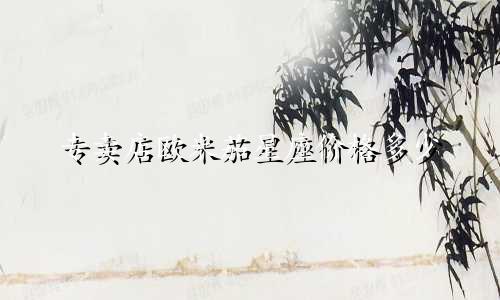 专卖店欧米茄星座价格多少